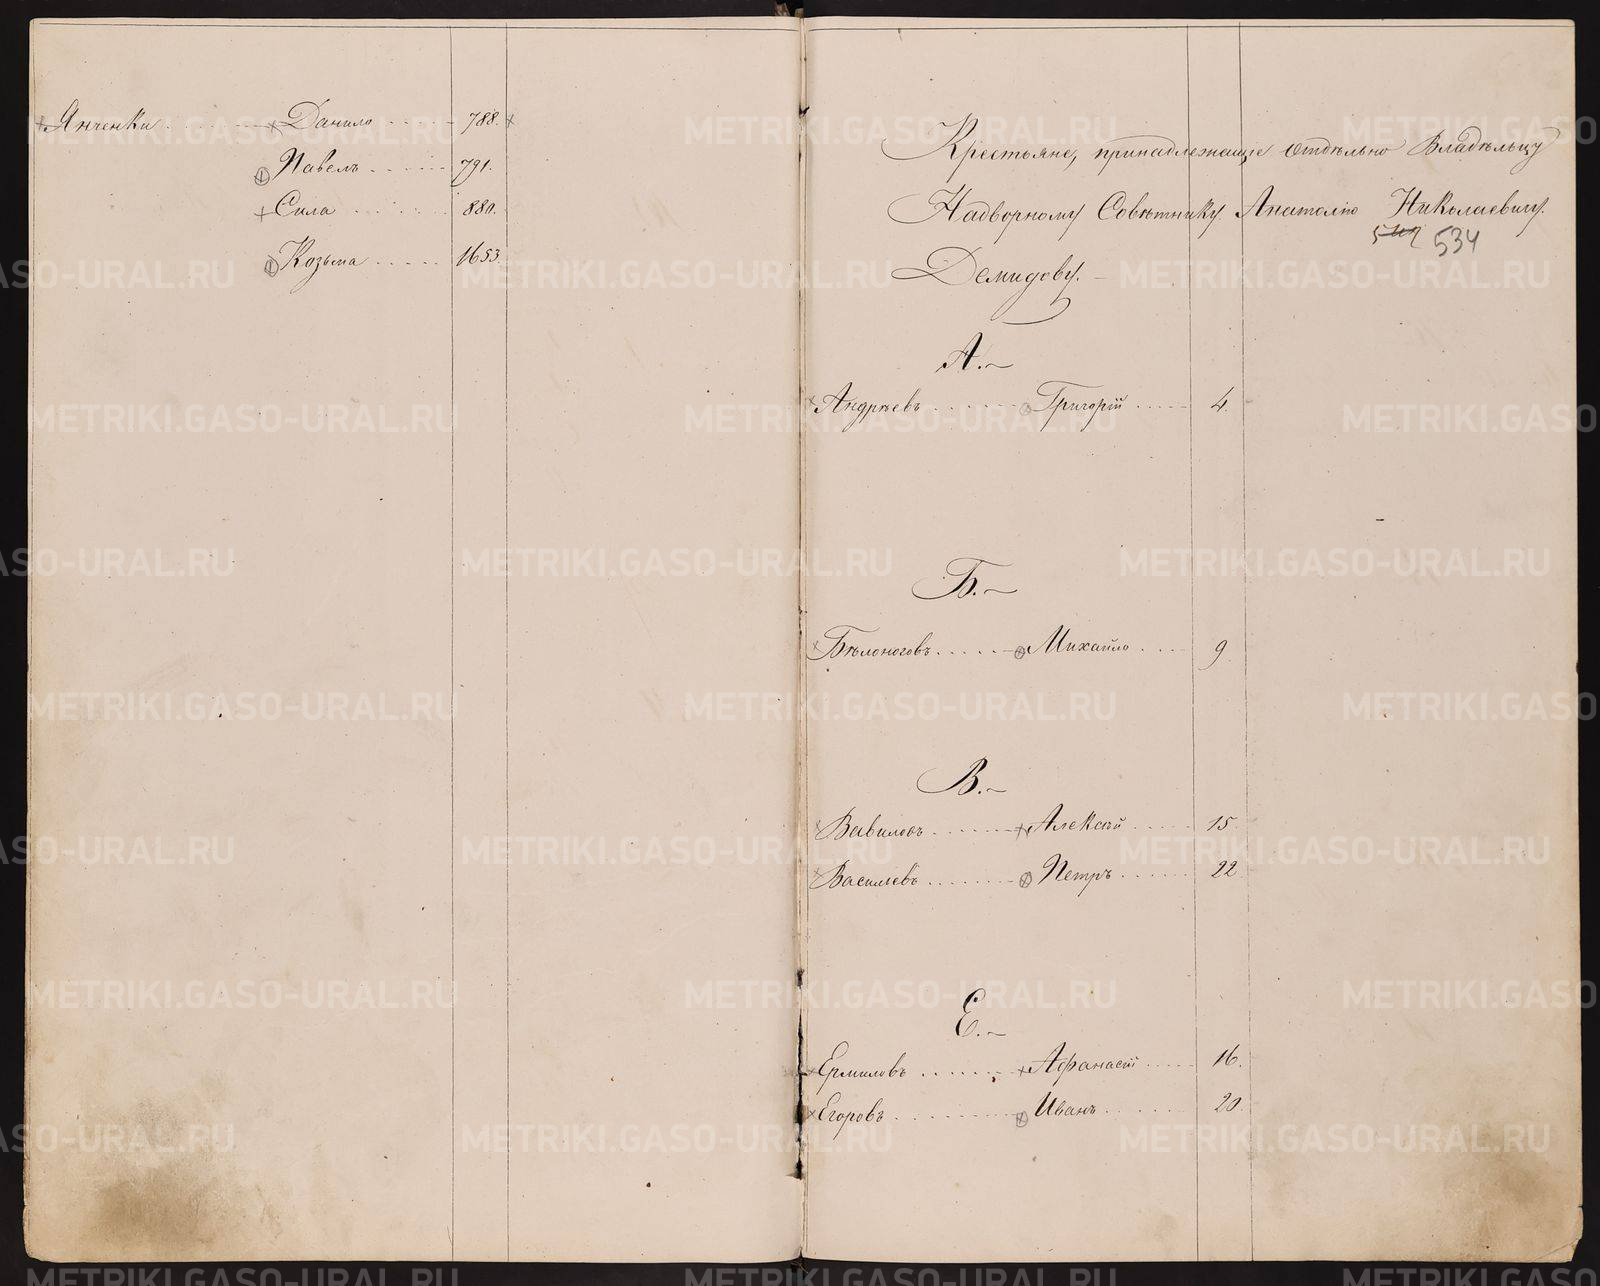 Янченки Данило 788.
Павелъ 791.
Сила 880.
Козьма 1653
Крестьяне, принадлежащіе отдѣльно Владѣльцу
Надворному Совѣтнику Анатолію Николаевичу
534
Демидову.
А.
Андрѣевъ Григорій 4.
Б.
Бѣлоноговъ Михайло 9
В.
Вавиловъ Алексѣй 15
Васильевъ Петръ 22
Е.
Ермиловъ Афанасій 16.
Егоровъ Иванъ 20.
METRIKI.GASO-URAL.RU